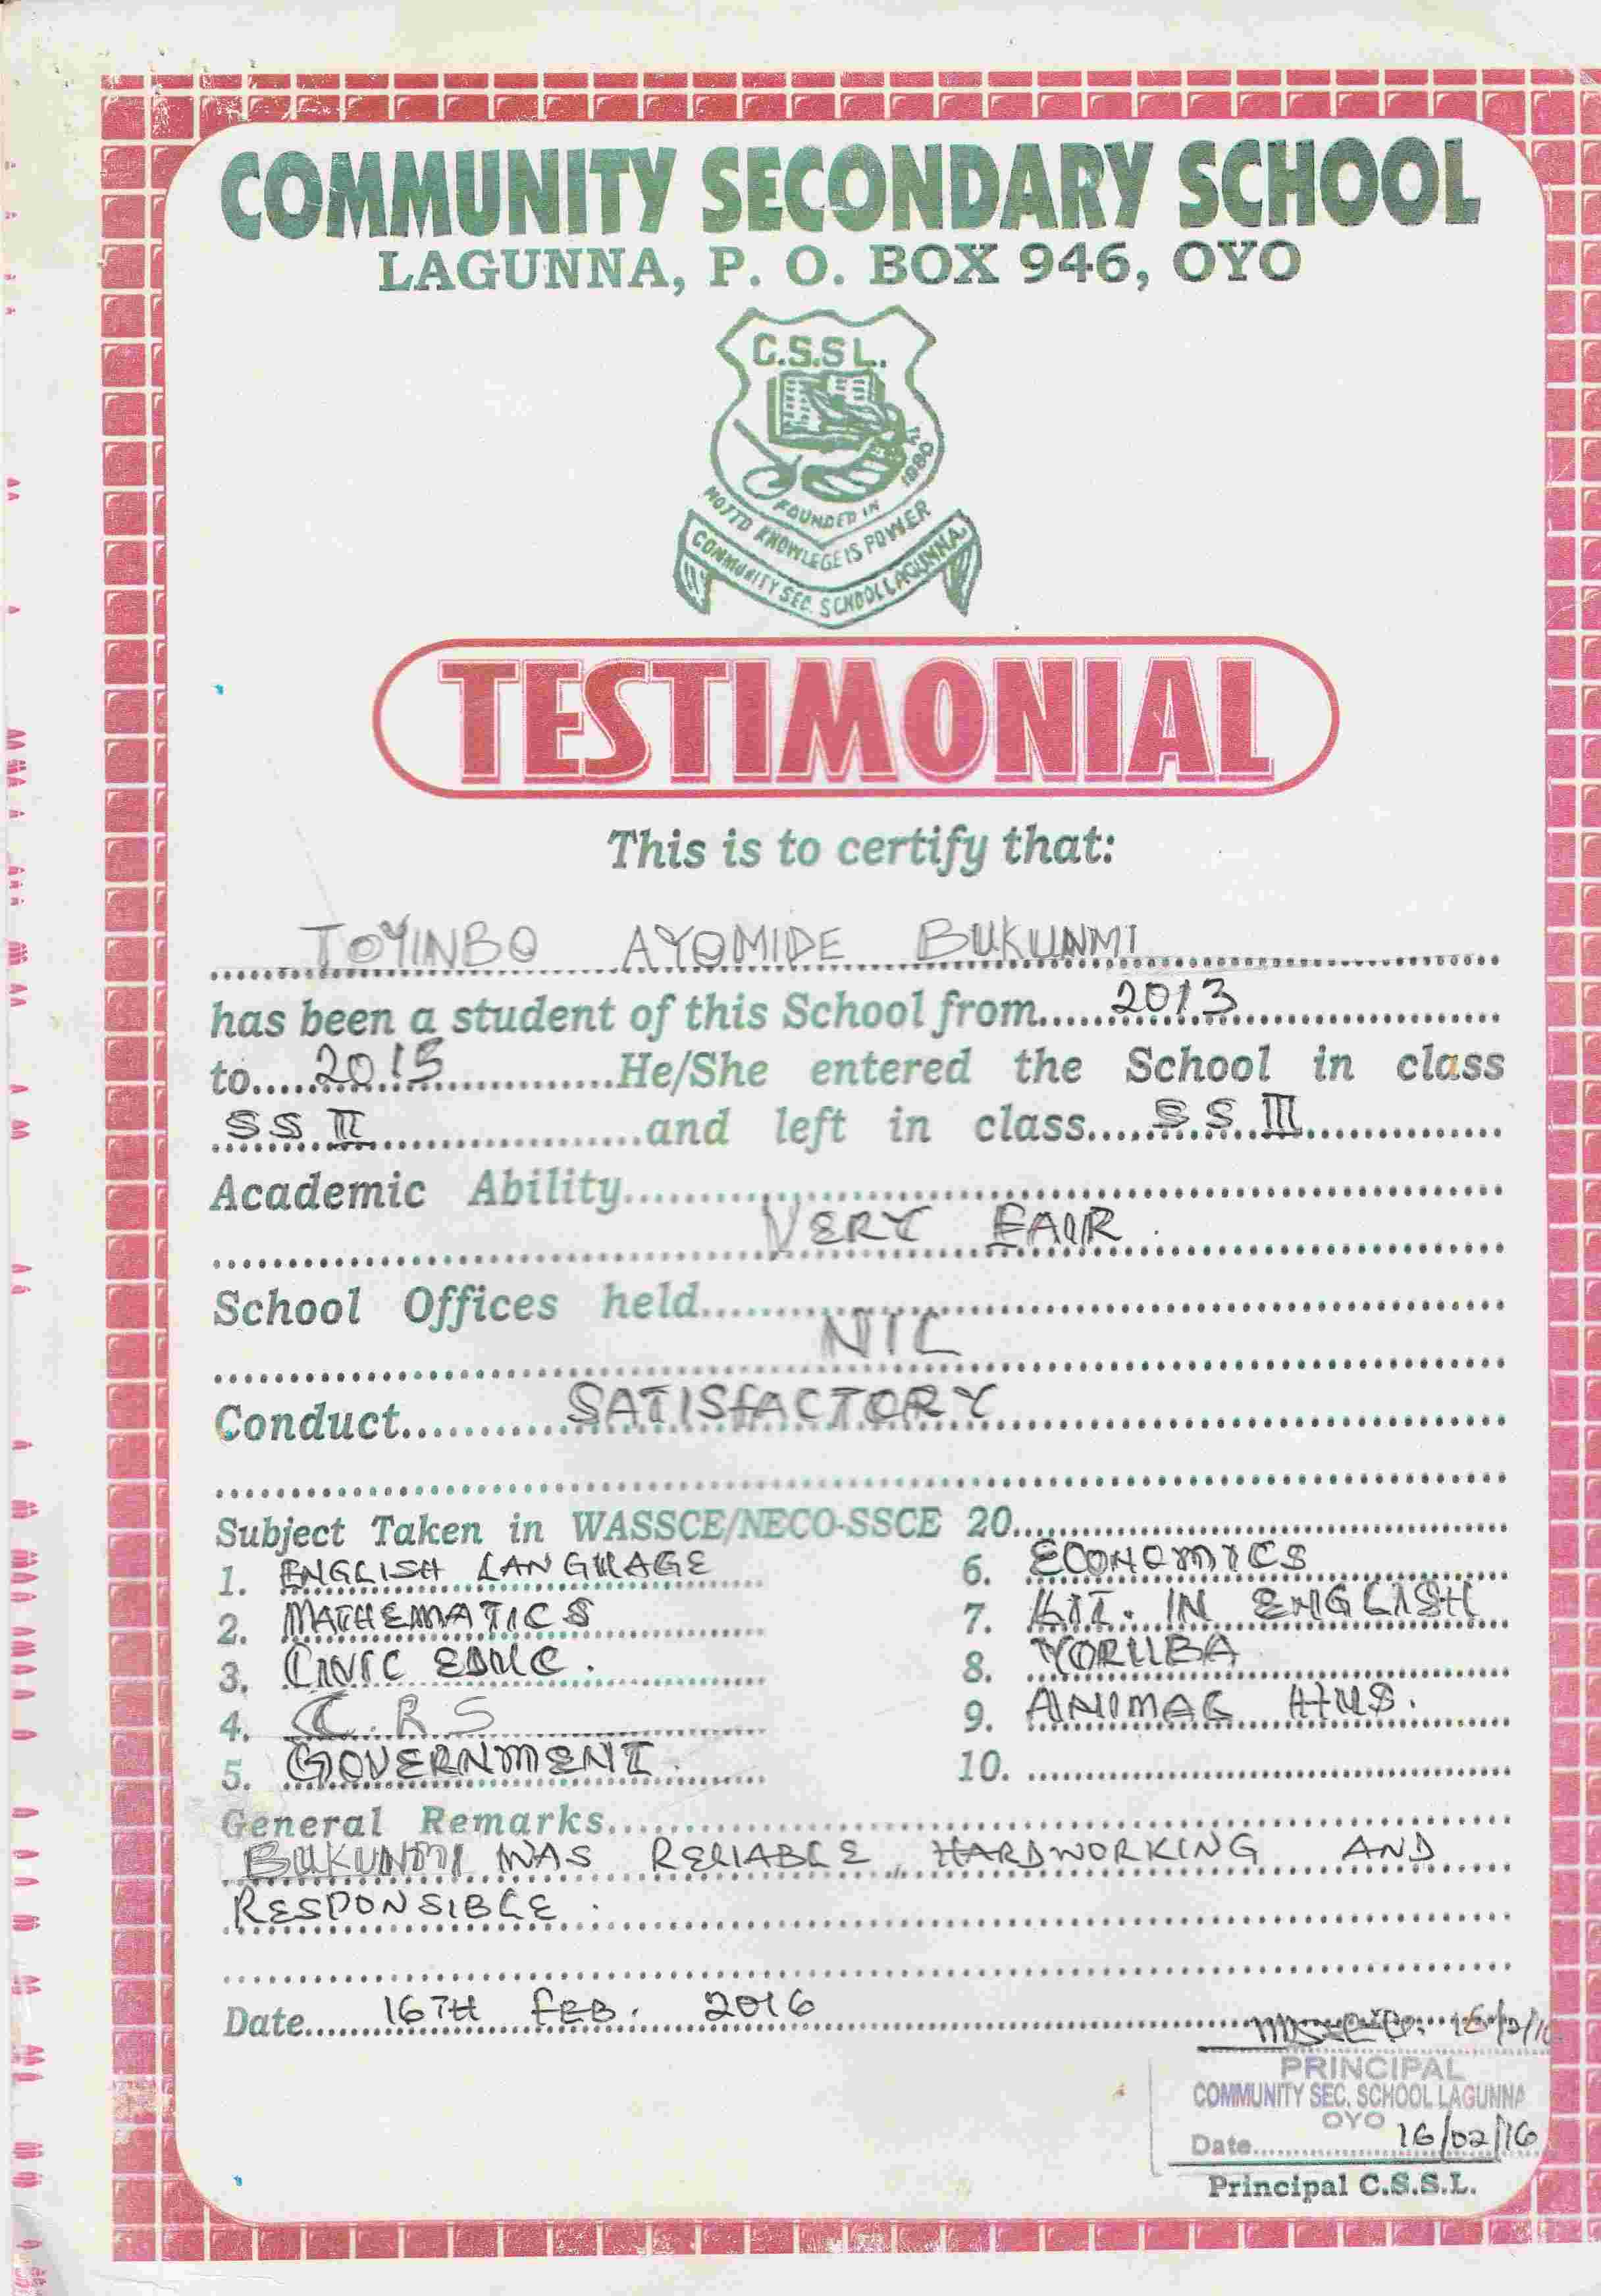 COMMUNITY SECONDARY SCHOOL
LAGUNNA, P. O. BOX 946, OYO
C.S.S L.
FOUNDED IN 1980
MOTTO KNOWLEGE IS POWER
COMMUNITY SEC. SCHOOL LAGUNNA
TESTIMONIAL
This is to certify that:
TOYINBO AYOMIDE BUKUNMI
has been a student of this School from.....2013
to.....2015.....He/She entered the School in class
SS II.....and left in class.....SS III
Academic Ability.....
VERY FAIR.
School Offices held.....
NIL
Conduct.....SATISFACTORY
Subject Taken in WASSCE/NECO-SSCE 20.....
1. ENGLISH LANGUAGE
2. MATHEMATICS
3. CIVIC EDUC.
4. C.R.S
5. GOVERNMENT.
6. ECONOMICS
7. LIT. IN ENGLISH
8. YORUBA
9. ANIMAL HUS.
10. .....
General Remarks.....
BUKUNMI WAS RELIABLE, HARDWORKING AND
RESPONSIBLE.
Date.....16TH FEB. 2016
16/2/16
PRINCIPAL
COMMUNITY SEC. SCHOOL LAGUNNA
OYO
Date.....16/02/16
Principal C.S.S.L.